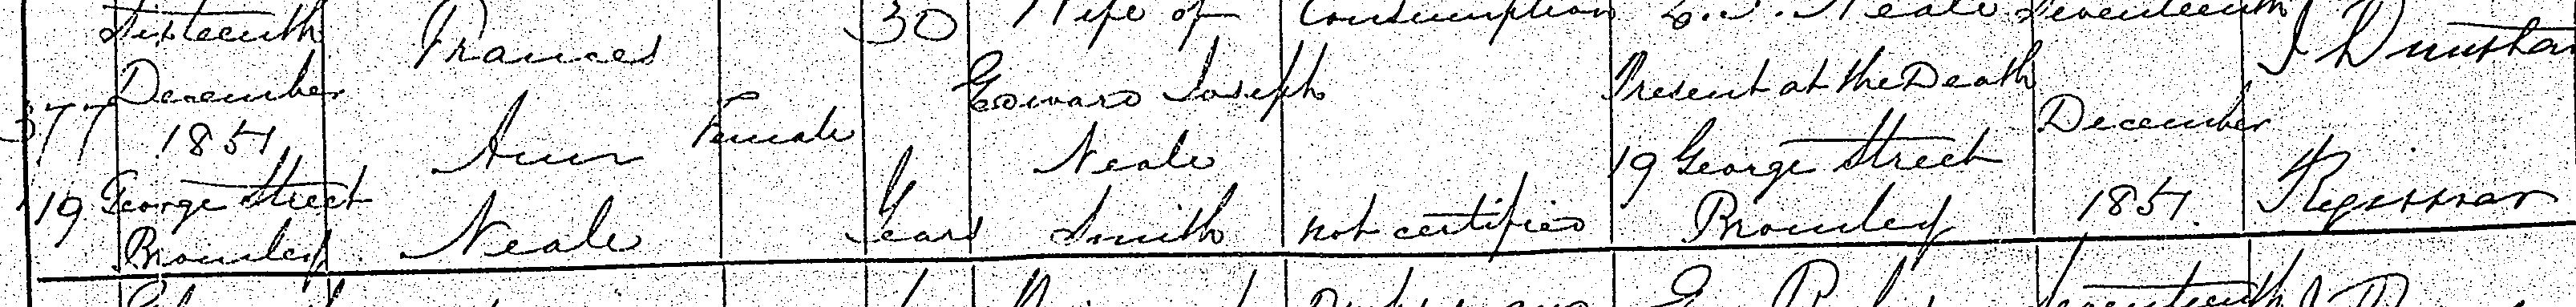 377
Sixteenth
December
1851
19 George Street
Bromley
Frances
Ann
Neale
Female
30
Years
Wife of
Edward Joseph
Neale
Smith
Consumption
not certified
E. J. Neale
Present at the Death
19 George Street
Bromley
Seventeenth
December
1851.
Registrar